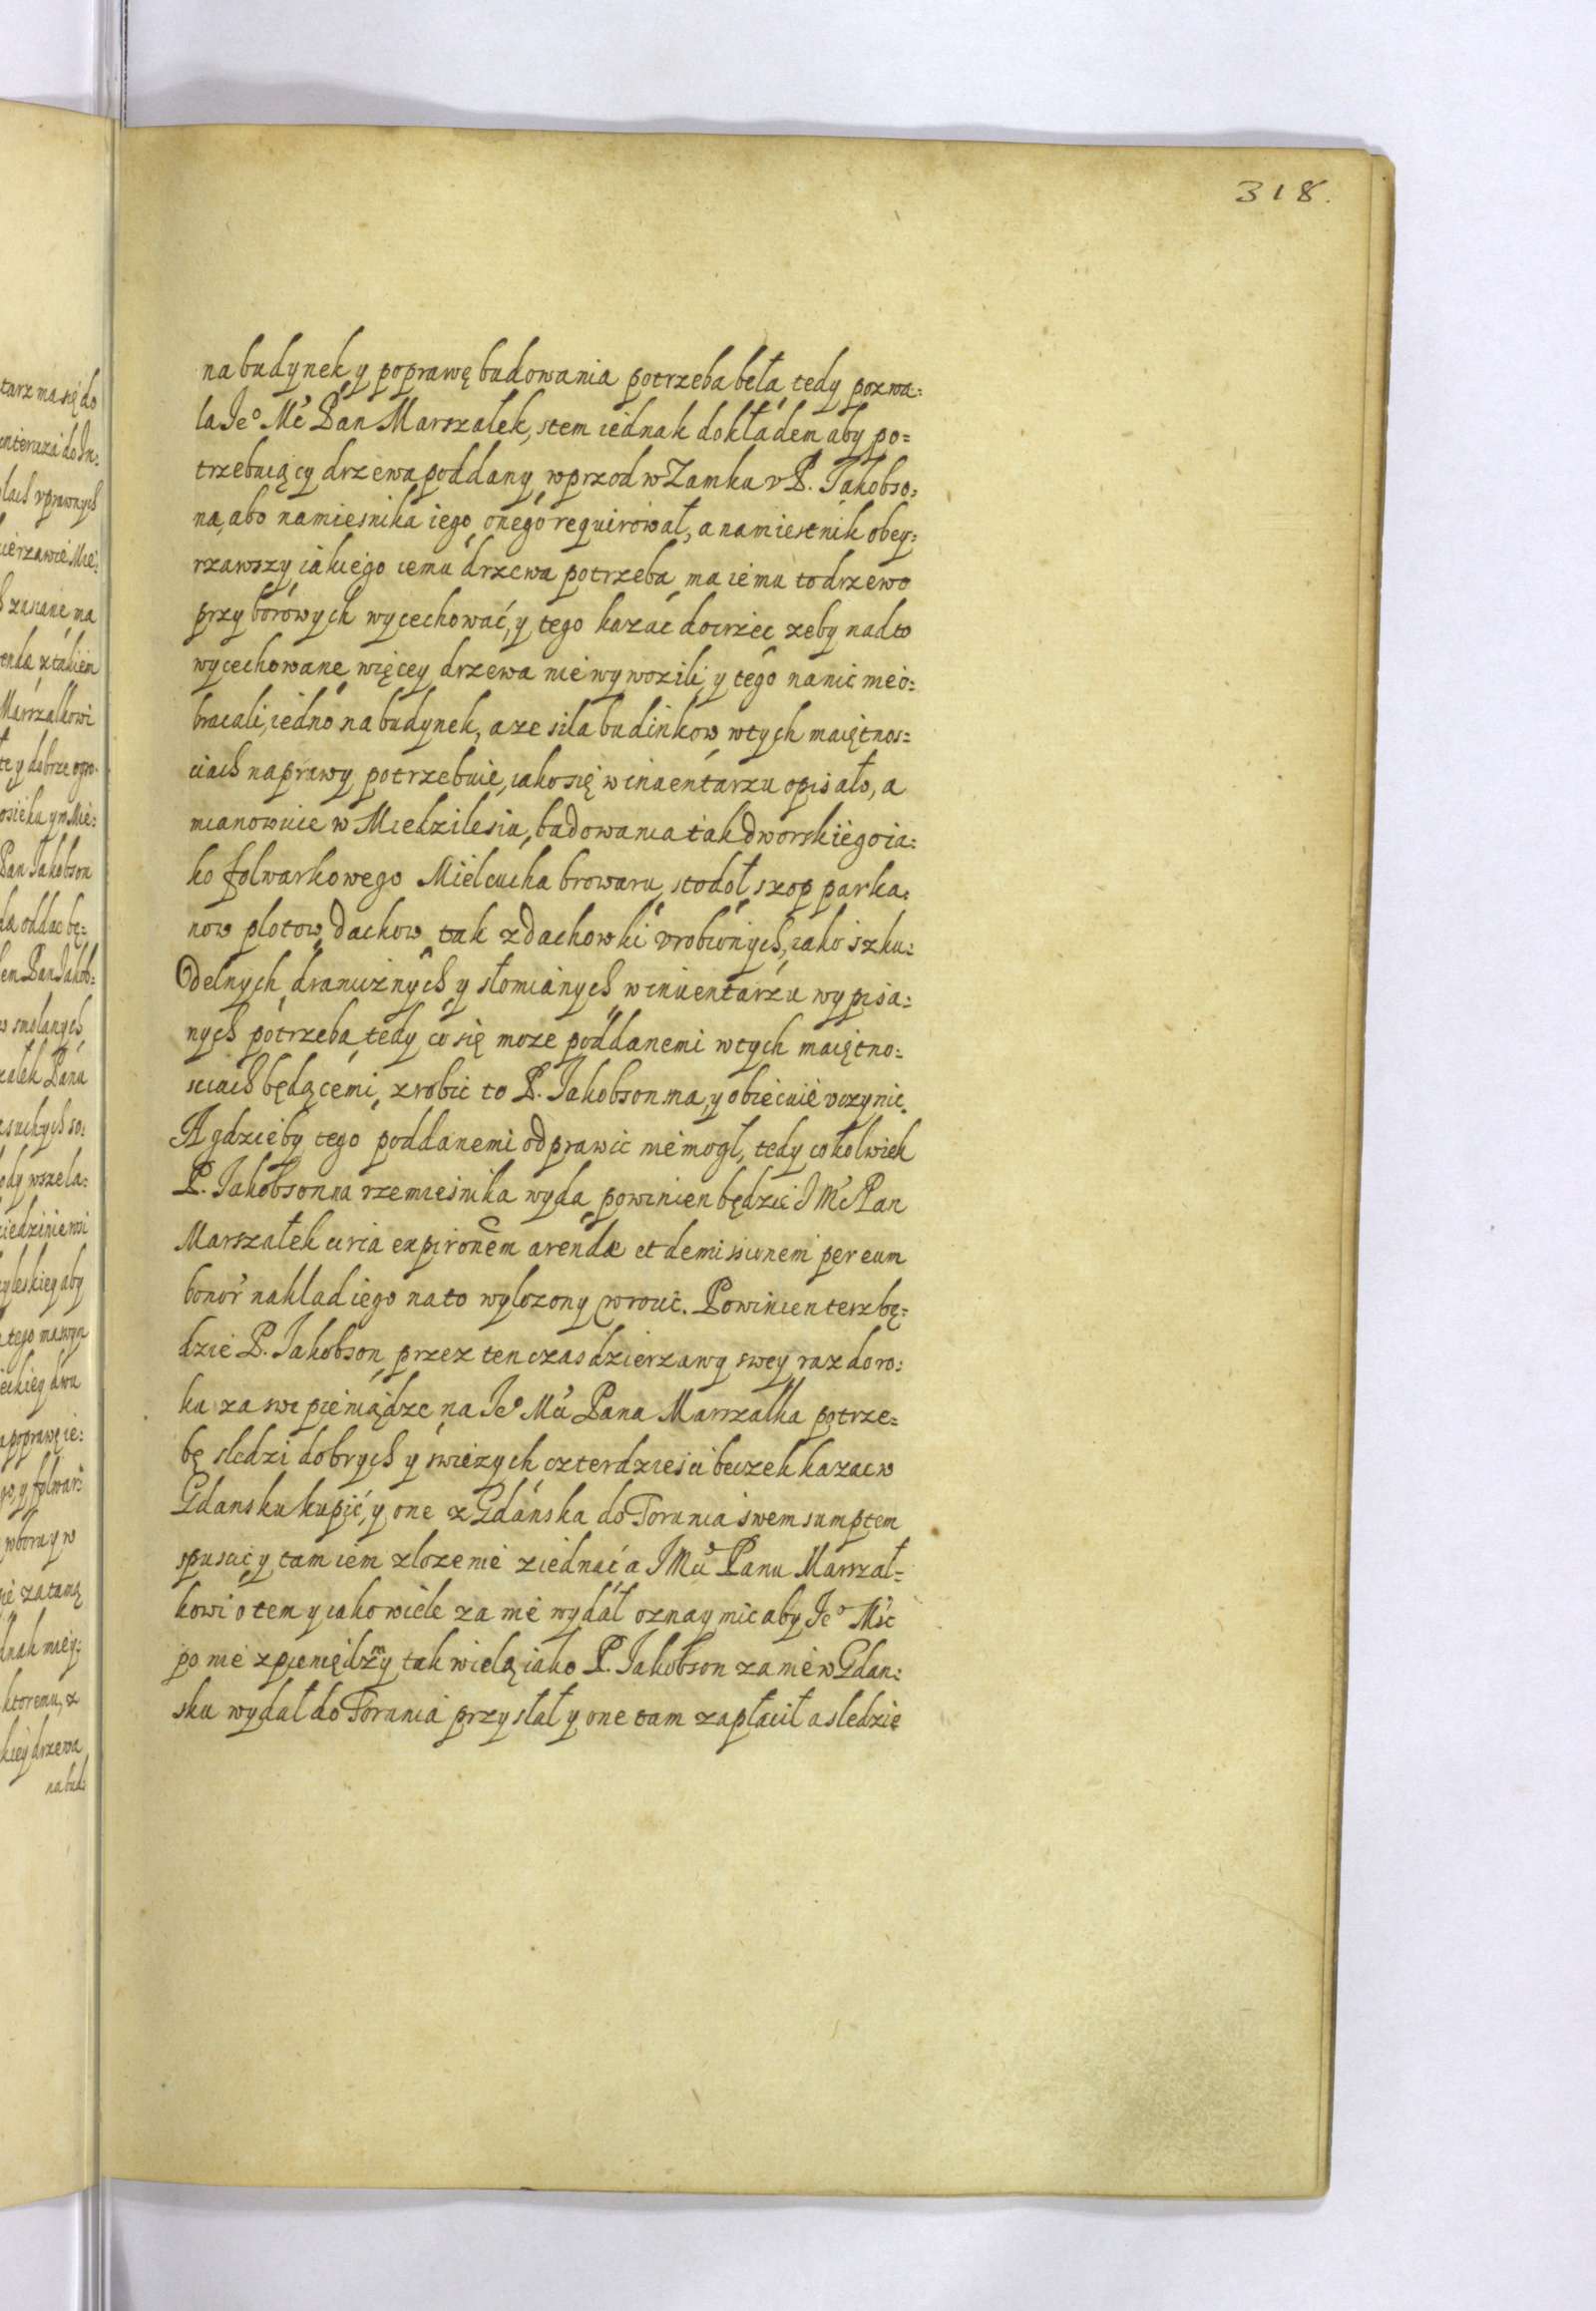 318.
na budynek y poprawę budowania potrzeba beła, tedy pozwa:
la Ie° Mć Pan Marszałek, stem iednak dokładem aby po=
trzebuiący drzewa poddany wprzod w Zamku v P. Jakobso:
na, abo namiesnika iego, onego requirował, a namiestnik obey:
rzawszy iakiego iemu drzewa potrzeba, ma iemu to drzewo
przy borowych wycechować, y tego kazać dozrzec, zeby nadto
wycechowane więcey drzewa nie wywozili, y tego na nic nieo:
bracali, iedno na budynek, a ze siła budinkow wtych maiętnos=
ciach naprawy potrzebuie, iako się w inuentarzu opisało, a
mianowicie w Miedzilesiu, budowania tak dworskiego ia:
ko folwarkowego Mielcucha browaru, stodoł, szop parka:
now płotow, dachow, tak z dachowki vrobionych, iako szku:
delnych, dranicznych y słomianych w inuentarzu wypisa:
nych potrzeba, tedy co się moze poddanemi wtych maiętno:
sciach będącemi, zrobic to P. Jakobson ma, y obiecuie vczynic.
A gdzieby tego poddanemi odprawic nie mogł, tedy cokolwiek
P. Jakobson na rzemiesnika wyda, powinien będzie I Mć Pan
Marszałek circa expironem arendæ et demissionem per eum
bonor nakład iego na to wylozony wrocic. Powinien tesz bę:
dzie P. Jakobson, przez ten czas dzierzawy swey raz do ro:
ku za swe pieniądze na Ie° Mci Pana Marszałka potrze=
bę sledzi dobrych y swiezych czterdziesci beczek kazac w
Gdansku kupić, y one z Gdańska do Torunia swem sumptem
spuscic y tam iem złozenie ziednać a I Mci Panu Marszał=
kowi o tem y iako wiele za nie wydał oznaymic aby Ie° Mść
po nie z pieniędzmy tak wielą iako P. Jakobson za nie w Gdan:
sku wydał do Torunia przysłał y one tam zapłacił a sledzie